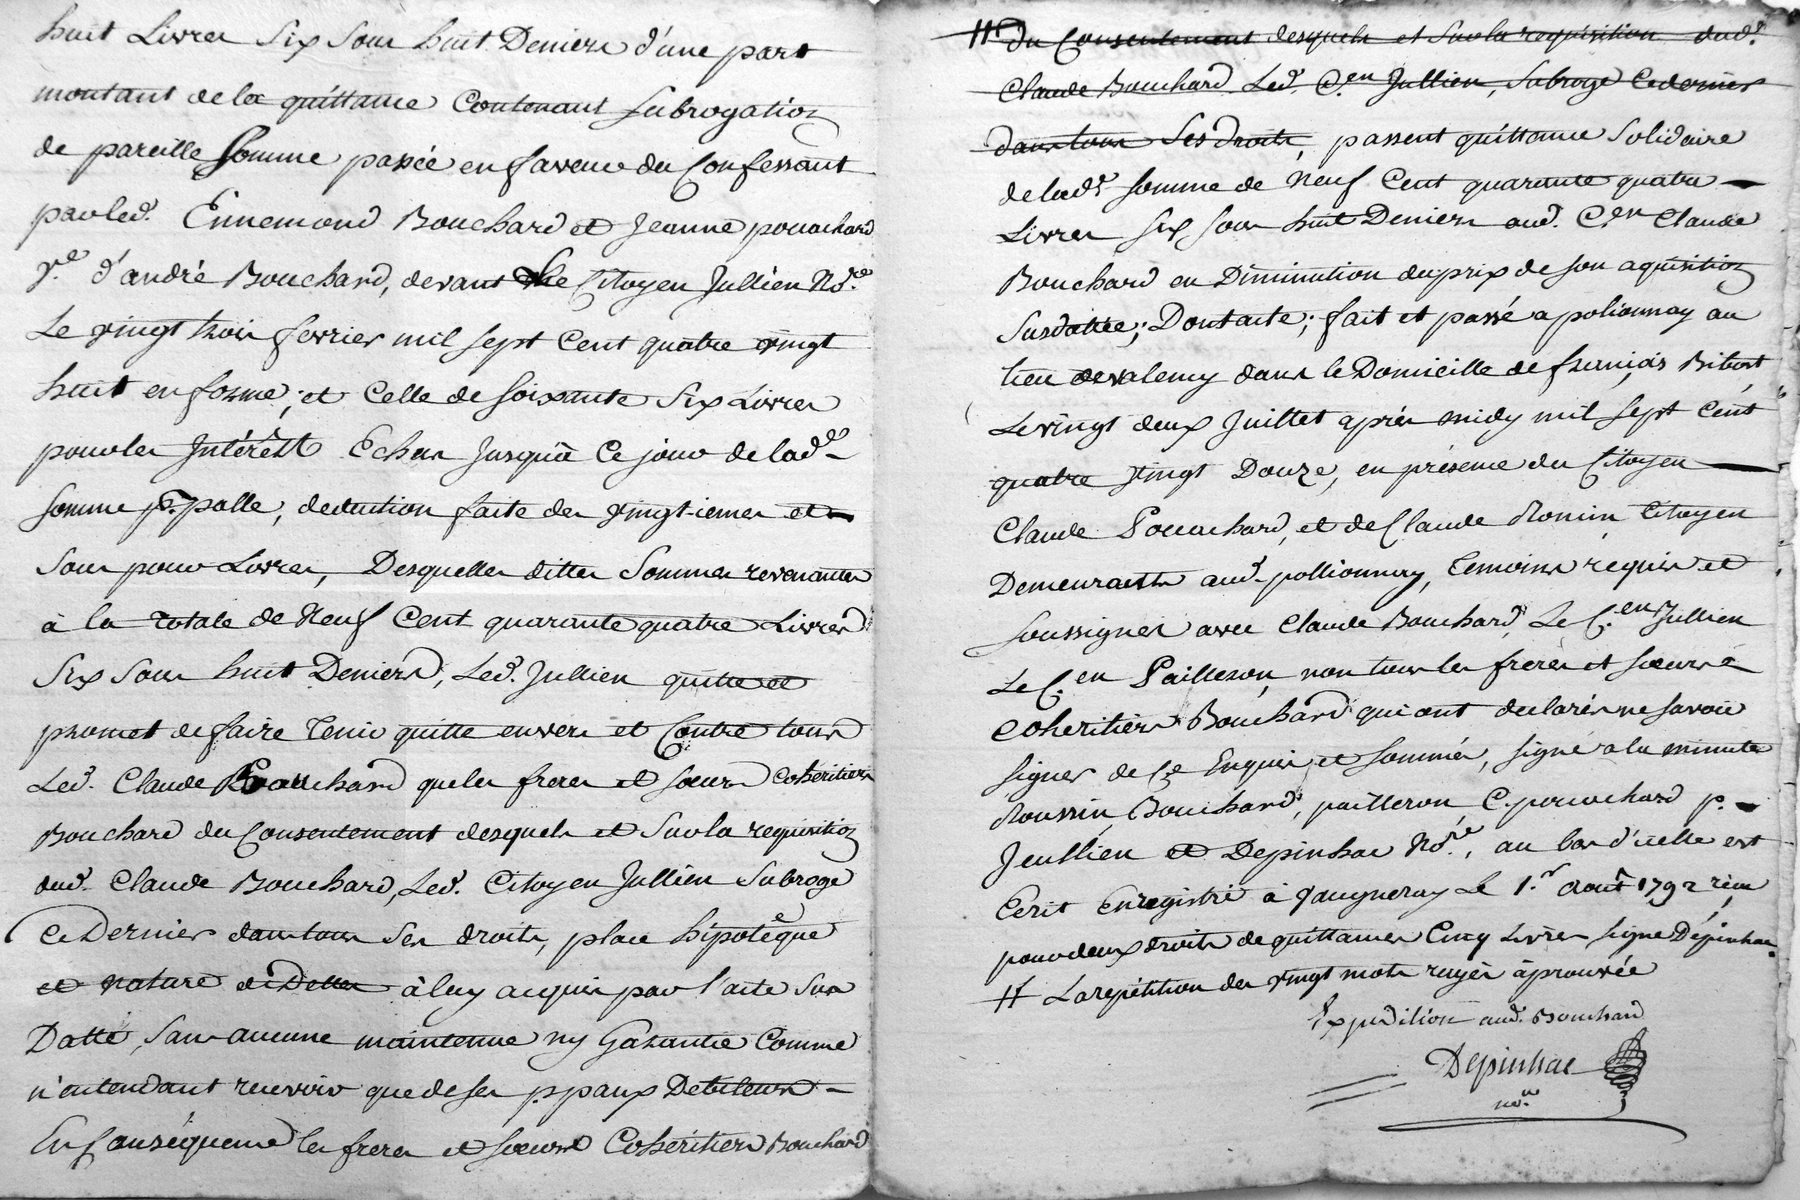 huit Livres Six Sous huit Deniers d'une part
montant de la quittance Contenant Subrogation
de pareille Somme passée en faveur du Confessant
par led. Ennemond Bouchard et Jeanne pouachard
v.e d'andré Bouchard, devant Le Citoyen Jullien No.re
Le vingt trois fevrier mil Sept Cent quatre vingt
huit en forme; et Celle de Soixante Six Livres
pour les Intérèst Echus Jusquà Ce jour de lad.e
Somme p.palle, deduction faite des vingt-iemes et
Sous pour Livres, Desquelles dittes Sommes revenantes
à la totale de Neuf Cent quarante quatre Livres
Six Sous huit Deniers, Led. Jullien quitte et
promet de faire tenir quitte envers et Contre tous
Led. Claude Bouchard que les freres et sœurs Cohéritiers
Bouchard du Consentement desquels et Sur la requisition
dud. Claude Bouchard, Led. Citoyen Jullien Subroge
Ce Dernier dans tous Ses droits, place hipotèque
et nature de Dettes à luy acquis par l'acte Sus
Datté, Sans aucune maintenue ny Garantie Comme
n'entendant recevoir que de ses p.paux Debiteurs
En Conséquence les freres et sœurs Cohéritiers Bouchard
# du Consentement desquels et Sur la requisition dud.
Claude Bouchard, Led. C.en Jullien, Subroge Ce dernier
dans tous Ses droits, passent quittance Solidaire
de lad.e Somme de Neuf Cent quarante quatre
Livres Six Sous huit Deniers aud. C.en Claude
Bouchard en Diminution du prix de Son aquisition
Susdattée; Dont acte; fait et passé a polionnay au
lieu de valency dans le Domicille de françois Bibost
Le vingt deux Juillet après midy mil Sept Cent
quatre vingt Douze, en présence du Citoyen
Claude Pouachard, et de Claude Romin Citoyen
Demeurants aud. pollionnay, temoins requis et
Soussignés avec Claude Bouchard, Le C.en Jullien
Le C.en Pailleron, non tous les freres et sœurs
Coheritiers Bouchard qui ont declarés ne savoir
Signer de Ce Enquis et Sommés, Signé a la minute
Roussin, Bouchard, pailleron, C. pouachard p.
Jeullien et Depinhac No.re, au bas d'icelle est
Ecrit Enregistré à vaugneray Le 1.r Août 1792, reçu
pour deux droits de quittances Cinq Livres Signé Dépinhac
# La répétition des vingt mots rayés àprouvée
Expedition aud. Bouchard
Depinhac
no.re